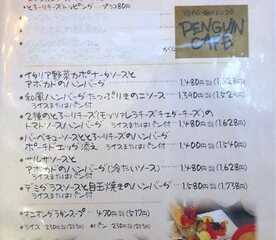 とろ〜りチーズトッピング プラス80円
PENGUIN
CAFE
イタリア野菜カポナータソースと
アボカドのハンバーグ 1,480円
ライスまたはパン付
和風ハンバーグたっぷりきのこソース 1,390円
ライスまたはパン付
2種のとろ〜りチーズ(モッツァレラチーズチェダーチーズ)の
トマトソースハンバーグ 1,480円(1,628円)
ライスまたはパン付
バーベキューソースととろ〜りチーズのハンバーグ
ポーチドエッグ添え 1,400円(1,540円)
ライスまたはパン付
サルサソースと
アボカドのハンバーグ(冷たいソース) 1,480円(1,628円)
ライスまたはパン付
デミグラスソースと目玉焼きのハンバーグ 1,580円(1,738円)
ライスまたはパン付
オニオングラタンスープ 470円(517円)
ライス 230円(253円) パン 230円(253円)